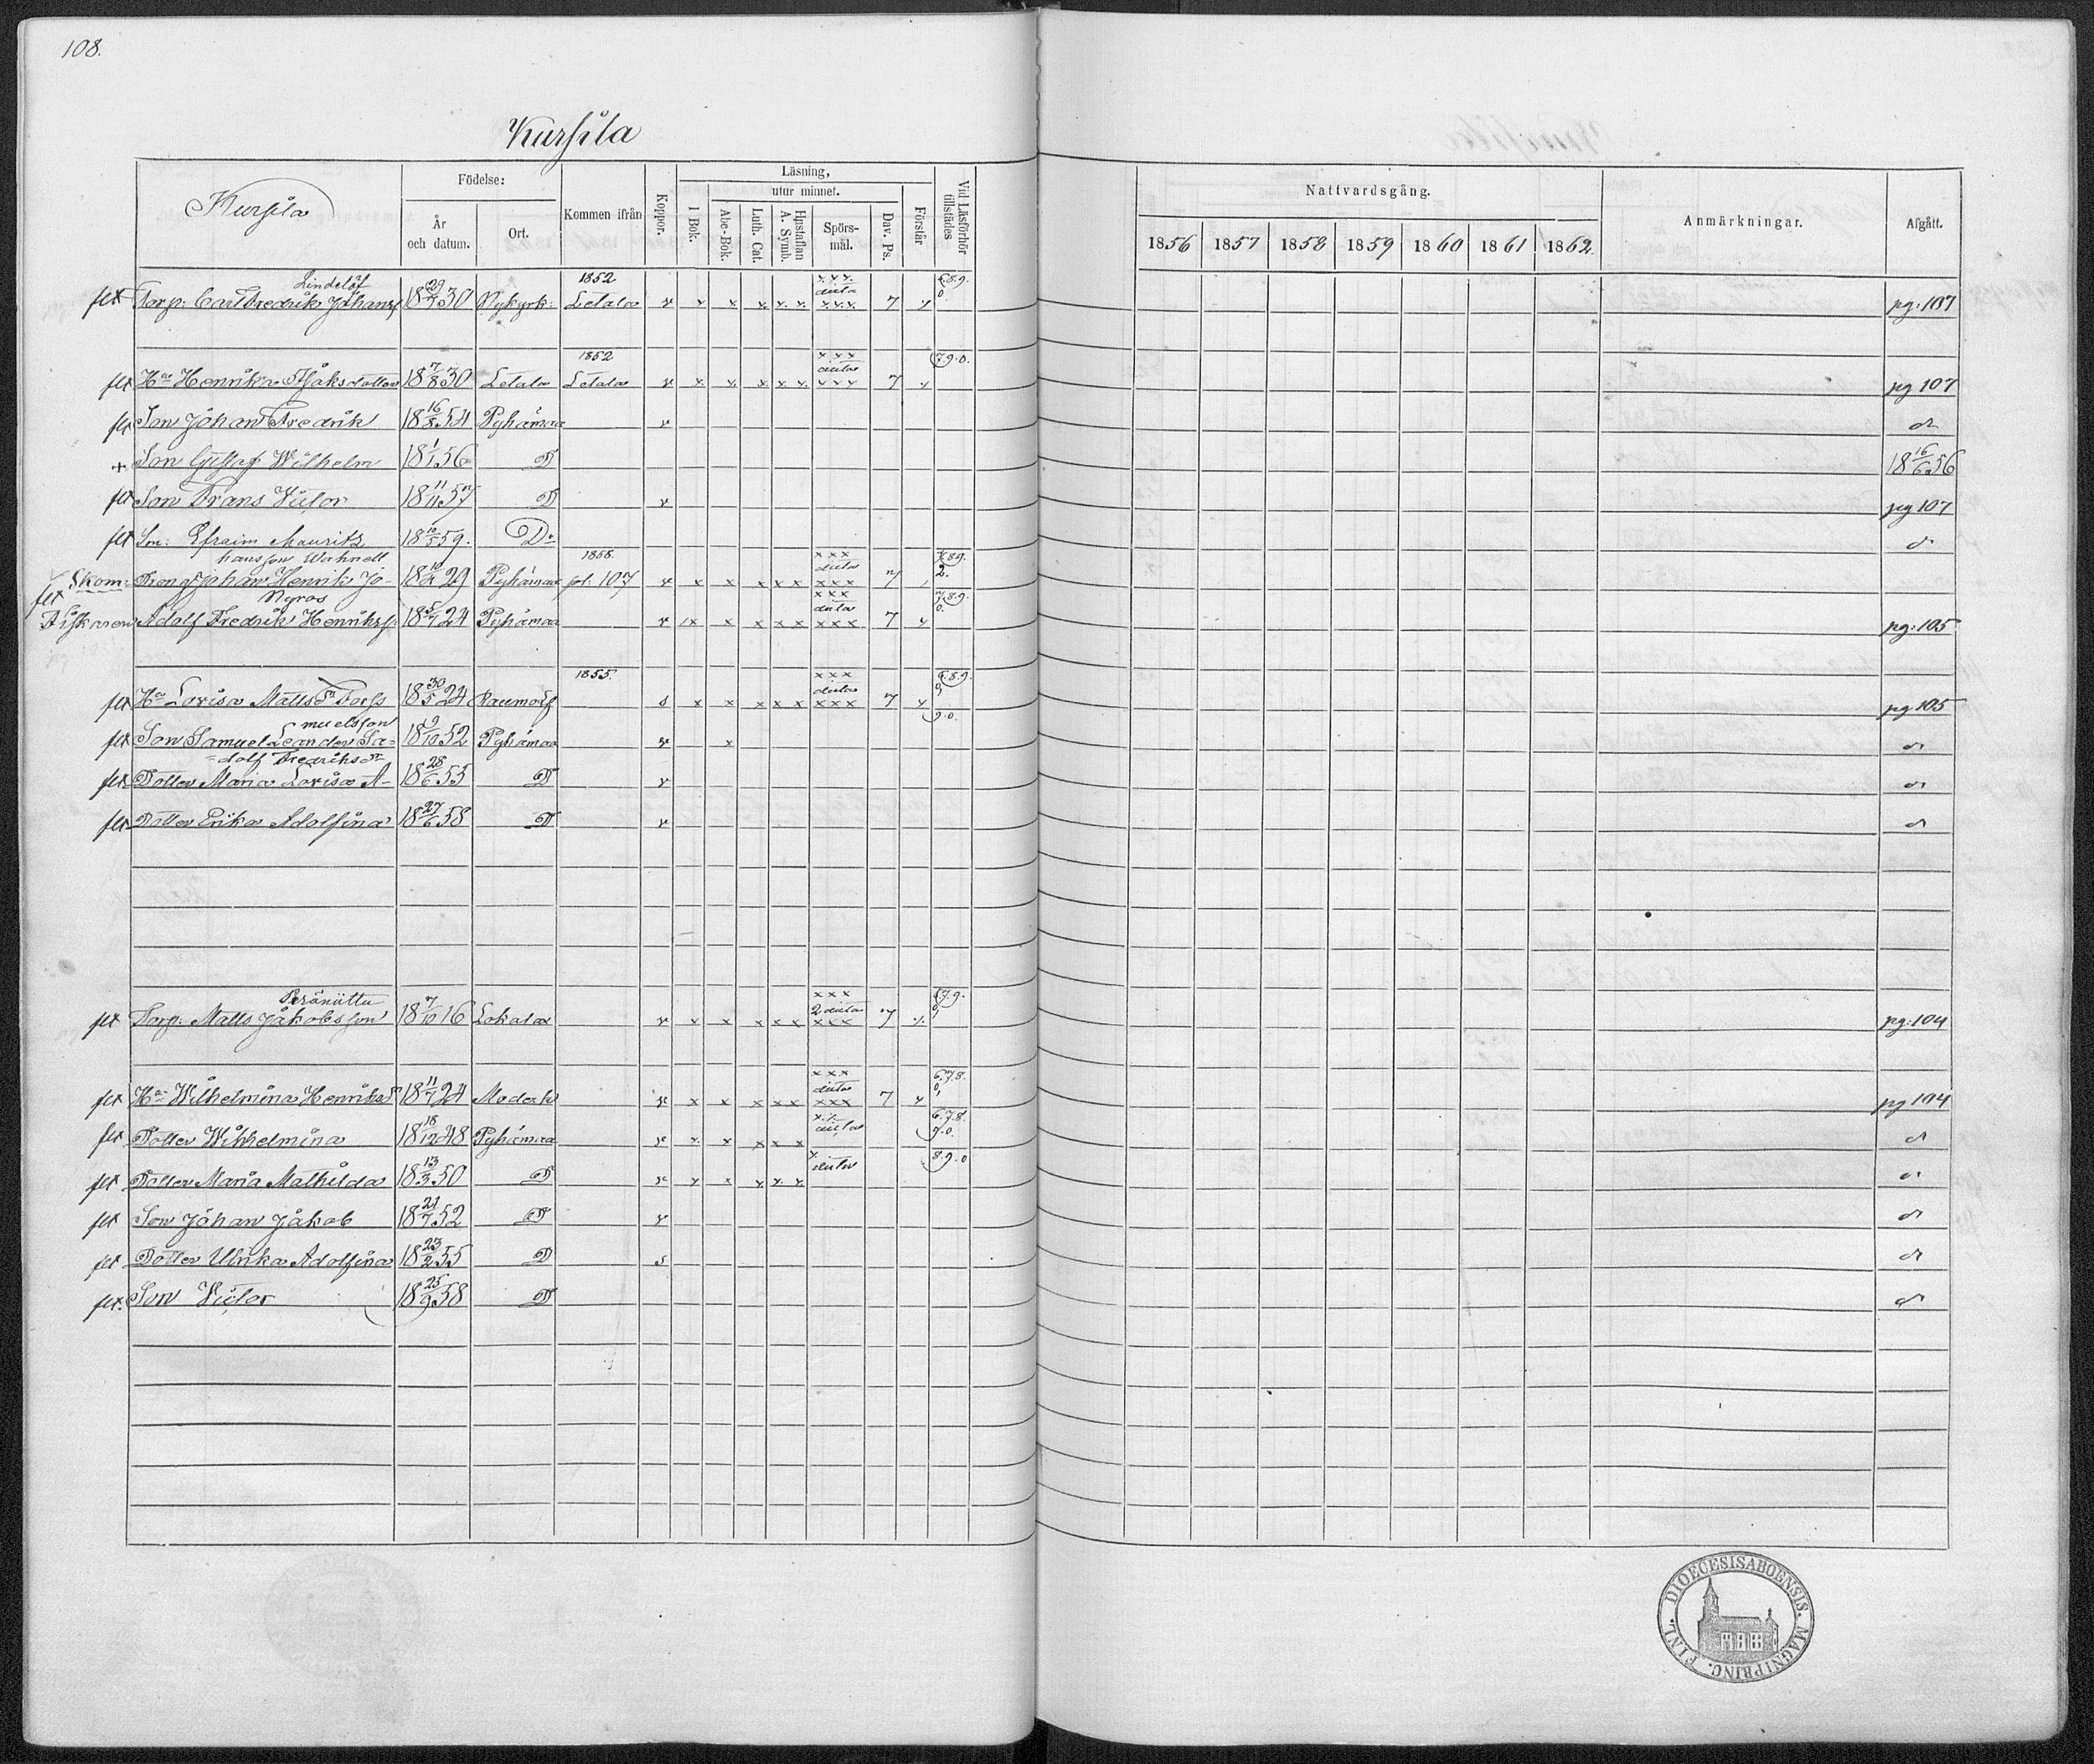 108.
Kursila
Kursila
Födelse:
År och datum.
Ort.
Kommen ifrån
Koppor.
Läsning,
I Bok.
utur minnet.
Abc-Bok.
Luth. Cat.
Hustaflan A. Symb.
Spörsmål.
Dav. Ps.
Förstår
Vid Läsförhör tillstädes
Nattvardsgång.
1856 1857 1858 1859 1860 1861 1862
Anmärkningar.
Afgått.
Lindelöf 1852 x x x 6.8.9.
flt Torp. Carl Fredrik Johanss 18 29/4 30 Nykyrk: Letala x x x x x x x x x 7 x 0 pg: 107
1852 x x x 7.9.0.
flt Hu Henrika Isaksdotter 18 7/8 30 Letala Letala x x x x x x x x x 7 x pg 107
flt Son Johan Fredrik 18 16/8 54 Pyhämaa x d
+ Son Gustaf Wilhelm 18 1/1 56 D 18 16/6 56
flt Son Frans Victor 18 11/11 57 D x pg 107
flt Son: Efraim Mauritz 18 10/5 59. Do d
hansson Wahnell 1858. x x x 7.8.9.
Skom: flt Dreng Johan Henrik Jo- 18 10/4 29 Pyhämaa pl: 107 x x x x x x x x x 7 2.
Nyroos x x x 7.8.9.
Fiskaren Adolf Fredrik Henrikss. 18 5/7 24 Pyhämaa x x x x x x x x x 7 x 0. pg: 105
1855. x x x 6.8.9.
flt Hu Lovisa Matts Dr Forss 18 30/5 24 Raumo s x x x x x x x x 7 x 9 pg 105
muelsson 9.0.
flt Son Samuel Leander Sa= 18 9/10 52 Pyhämaa x x d
=dolf Fredriks Dr
flt Dotter Maria Lovisa A- 18 28/6 55 D x d
flt Dotter Erika Adolfina 18 27/6 58 D x d
Peräniittu x x x 6.7.9.
flt Torp. Matts Jakobsson 18 7/10 16 Lokalax x x x x x x 2 x x x 7 x. 0 pg: 104
x x x 6.7.8.
flt Hu Wilhelmina Henriks Dr 18 11/7 24 Moderk x x x x x x x x x 7 x 0, pg 104
flt Dotter Wilhelmina 18 18/12 48 Pyhämaa x x x x x x 6.7.8. 9.0. d
flt Dotter Maria Mathilda 18 13/3 50 D x x x x x x 8.9.0 d
flt Son Johan Jakob 18 21/7 52 D x d
flt Dotter Ulrika Adolfina 18 23/2 55 D s d
flt. Son Victor 18 25/9 58 D d
DIOECESIS ABOENSIS. MAGNI PRINC. FINL.